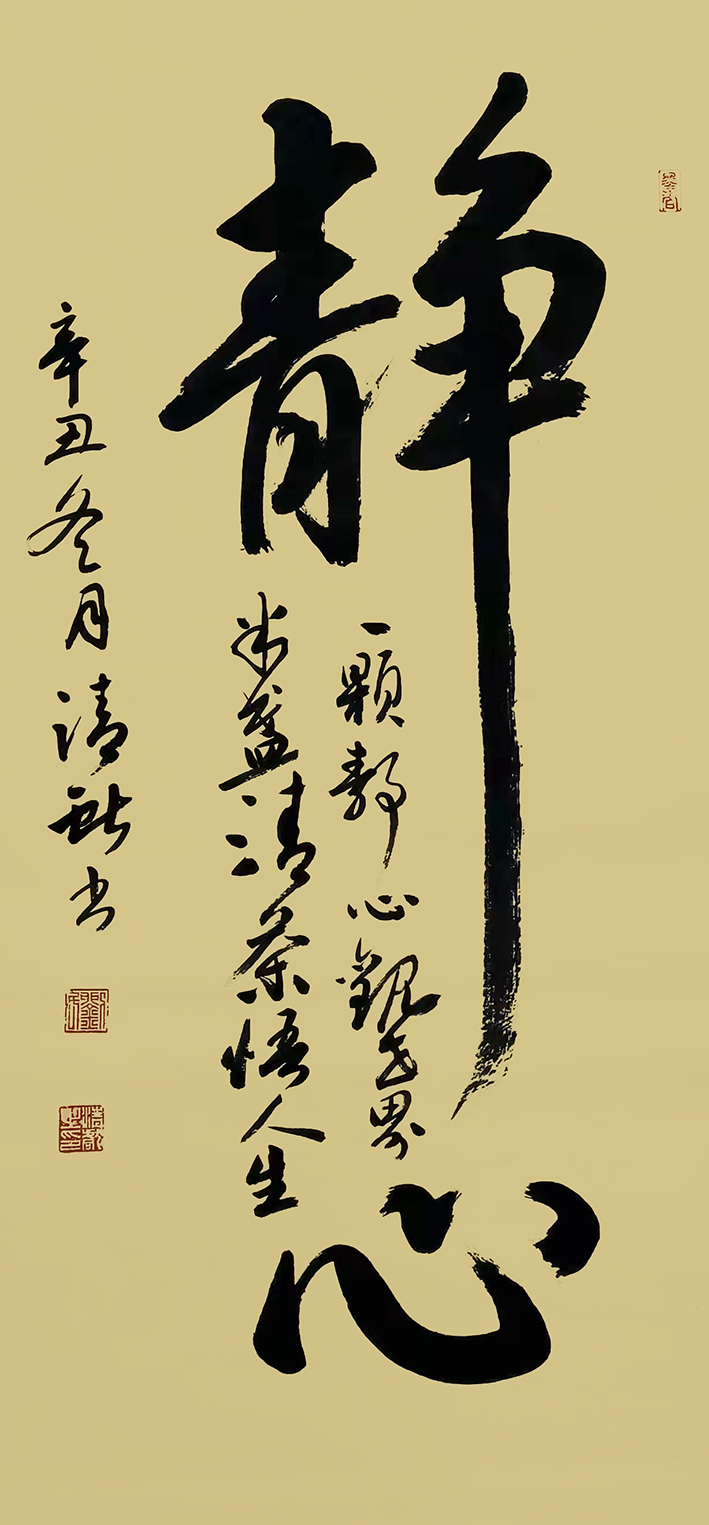 静心
一颗静心观世界
半盏清茶悟人生
辛丑冬月清书